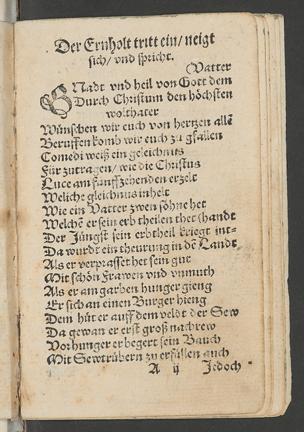 Der Ernholt tritt ein/ neigt
sich/ vnd spricht.
(Vatter
GNadt vnd heil von Gott dem
Durch Christum den höchsten
wolthater
Wünschen wir euch von hertzen allẽ
Beruffen komb wir euch zu gfallen
Comedi weiß ein geleichnus
Für zutragen/ wie die Christus
Luce am fünffzehenden erzelt
Weliche gleichnus inhelt
Wie ein Vatter zwen söhne het
Welchẽ er sein erb theilen thet (handt
Der Jüngst sein erbtheil kriegt int-
Da wurdt ein theurung in dẽ Landt
Als er verprasset het sein gut
Mit schön Frawen vnd vnmuth
Als er am garben hunger gieng
Er sich an einen Burger hieng
Dem hüt er auff dem veldt der Sew
Da gewan er erst groß nachrew
Vor hunger er begert sein Bauch
Mit Sewtrübern zu erfüllen auch
A ij Jedoch